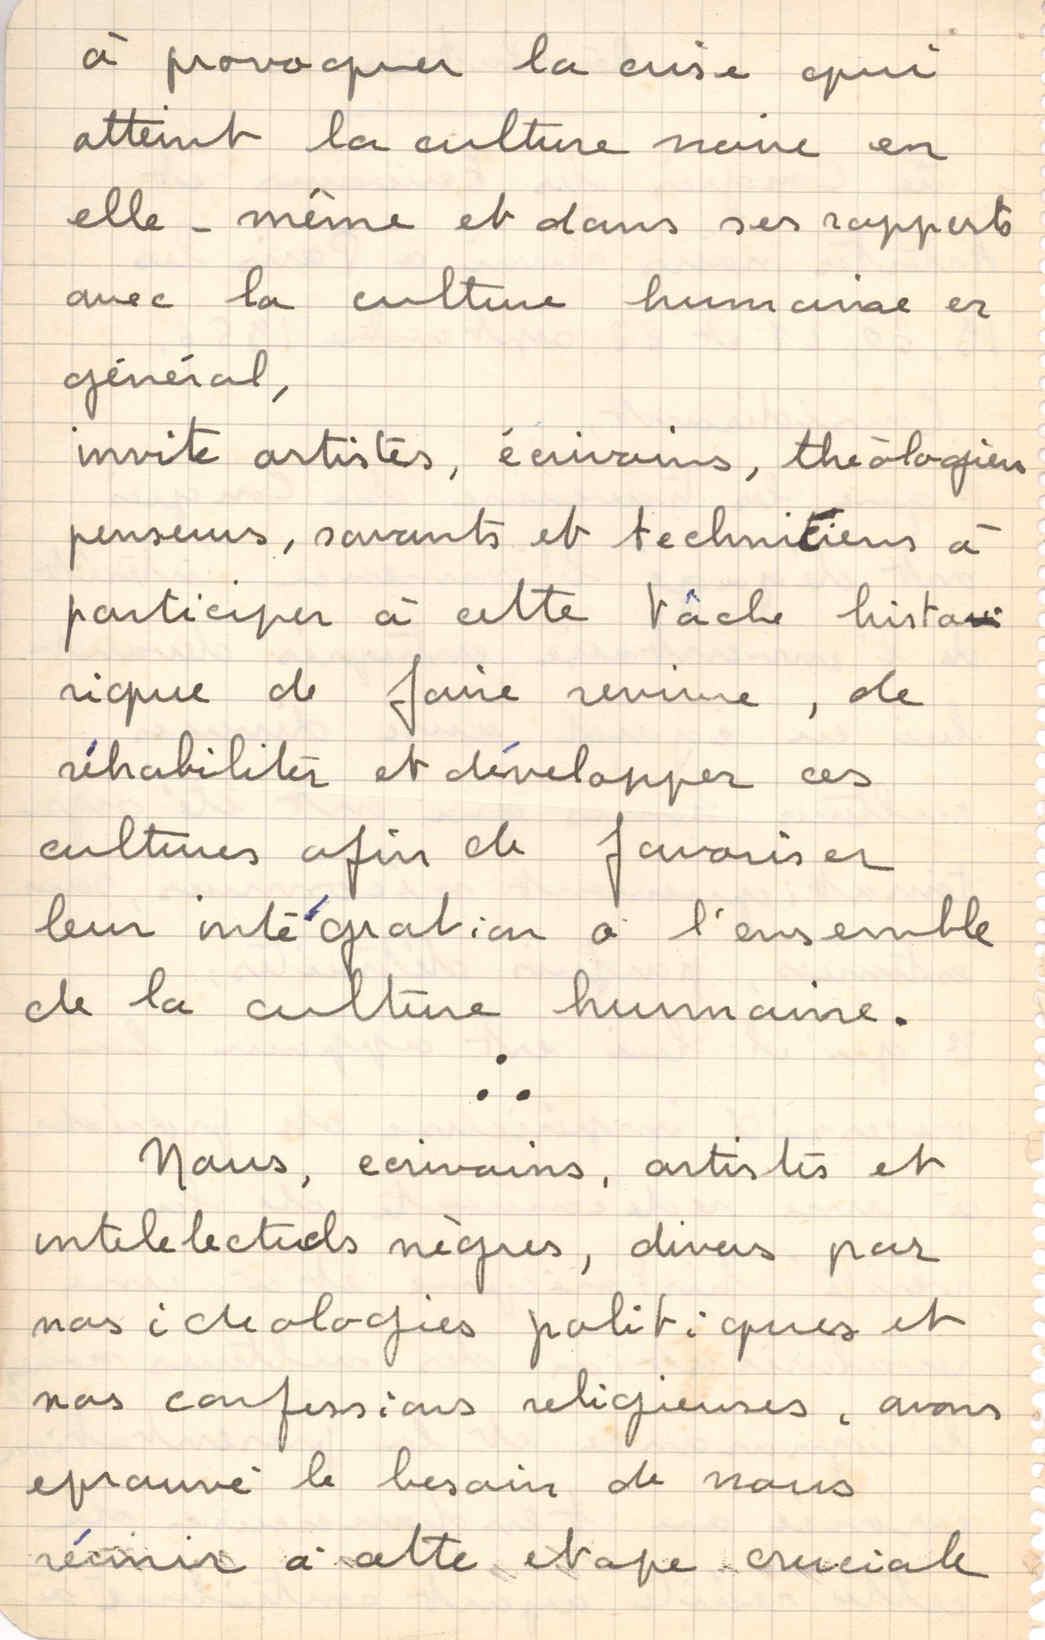 à provoquer la crise qui
atteint la culture noire en
elle-même et dans ses rapports
avec la culture humaine en
général,
invite artistes, écrivains, théologiens
penseurs, savants et techniciens à
participer à cette tâche histo
rique de faire revivre, de
réhabiliter et développer ces
cultures afin de favoriser
leur intégration à l'ensemble
de la culture humaine.
∴
Nous, ecrivains, artistes et
intelelectuels nègres, divers par
nos ideologies politiques et
nos confessions religieuses, avons
eprouvé le besoin de nous
réunir à cette etape cruciale